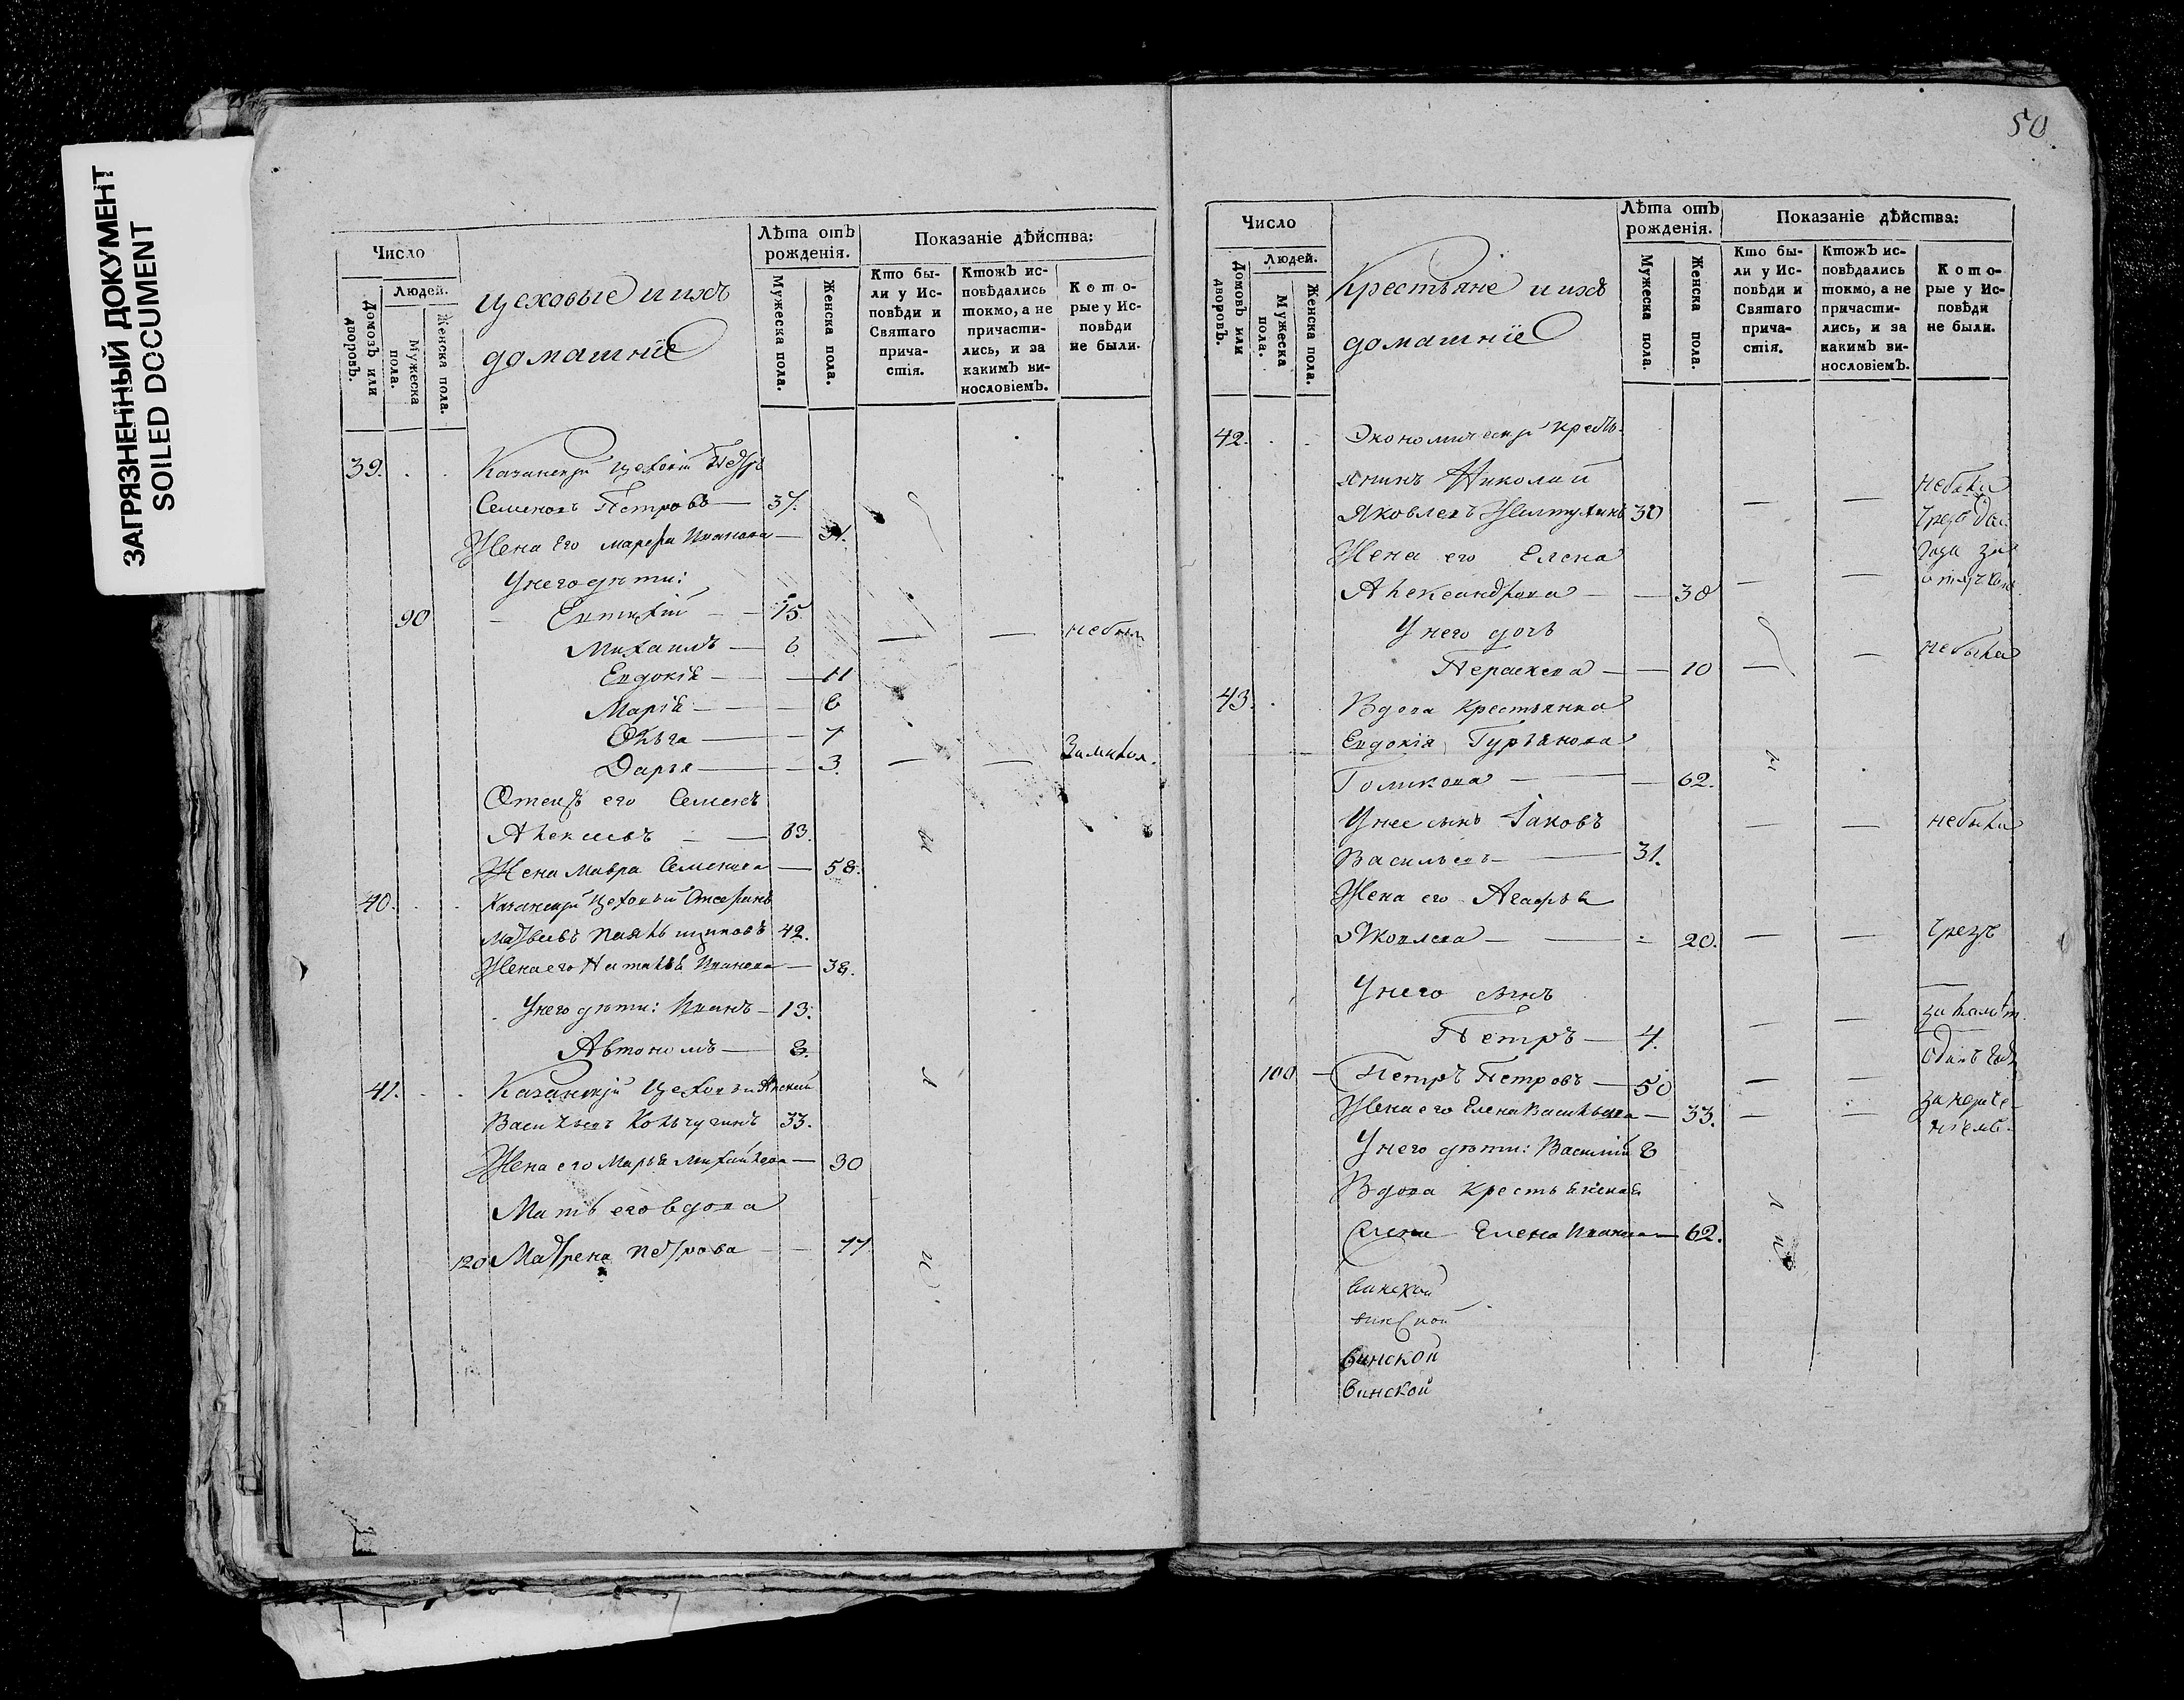 ЗАГРЯЗНЕННЫЙ ДОКУМЕНТ
SOILED DOCUMENT
Число
Домовъ или дворовъ.
Людей.
Мужеска пола.
Женска пола.
цеховые и ихъ
домашніе
Лѣта отъ рожденія.
Мужеска пола.
Женска пола.
Показаніе дѣйства:
Кто бы-
ли у Ис-
повѣди и
Святаго
прича-
стія.
Ктожъ ис-
повѣдались
токмо, а не
причасти-
лись, и за
какимъ ви-
нословіемъ.
Кото-
рые у Ис-
повѣди
не были.
39. Казанскiй цеховiй Петръ
Семеновъ Петровъ 37.
Жена Его Марѳа Иванова 31.
У него дѣти:
90 Евтихiй 15.
Михаилъ 6 небыли
Евдокiя 11
Марiя 6
Ольга 7
Дарья 3. Замалол.
Отецъ его Семенъ
Алексѣевъ 63.
Жена Мавра Семенова 58.
40. Казанскiй Цеховый
Матвѣевъ 42.
Жена его Наталья Иванова 38.
У него дѣти: Иванъ 13.
Автономъ 8.
41. Казанскiй Цеховый
Васильевъ Кольчугинъ 33.
Жена его Марья Михайлова 30
Мать его вдова
120 Матрена Петрова 77
50
Число
Домовъ или дворовъ.
Людей.
Мужеска пола.
Женска пола.
Крестьяне и ихъ
домашніе
Лѣта отъ рожденія.
Мужеска пола.
Женска пола.
Показаніе дѣйства:
Кто бы-
ли у Ис-
повѣди и
Святаго
прича-
стія.
Ктожъ ис-
повѣдались
токмо, а не
причасти-
лись, и за
какимъ ви-
нословіемъ.
Кото-
рые у Ис-
повѣди
не были.
42. Экономическiй кресть-
янинъ Николай небыли
Яковлевъ Желтухинъ 30 Чрезъ два
Жена его Елена года за
Александрова 38 отлучкою
У него дочь
Параскева 10 небыла
43. Вдова Крестьянка
Евдокiя Гурьянова
Голикова 62.
У нее сынъ Iаковъ небыли
Васильевъ 31.
Жена его Агафья
Яковлева 20. Чрезъ
У него сынъ
Петръ 4. за
100 Петръ Петровъ 50 одинъ годъ
Жена его Елена Васильева 33. за нераче-
нiемъ.
У него дѣти: Василiй 8
Вдова Крестьянская
Елена Иванова 62.
винской
винской
винской
винской